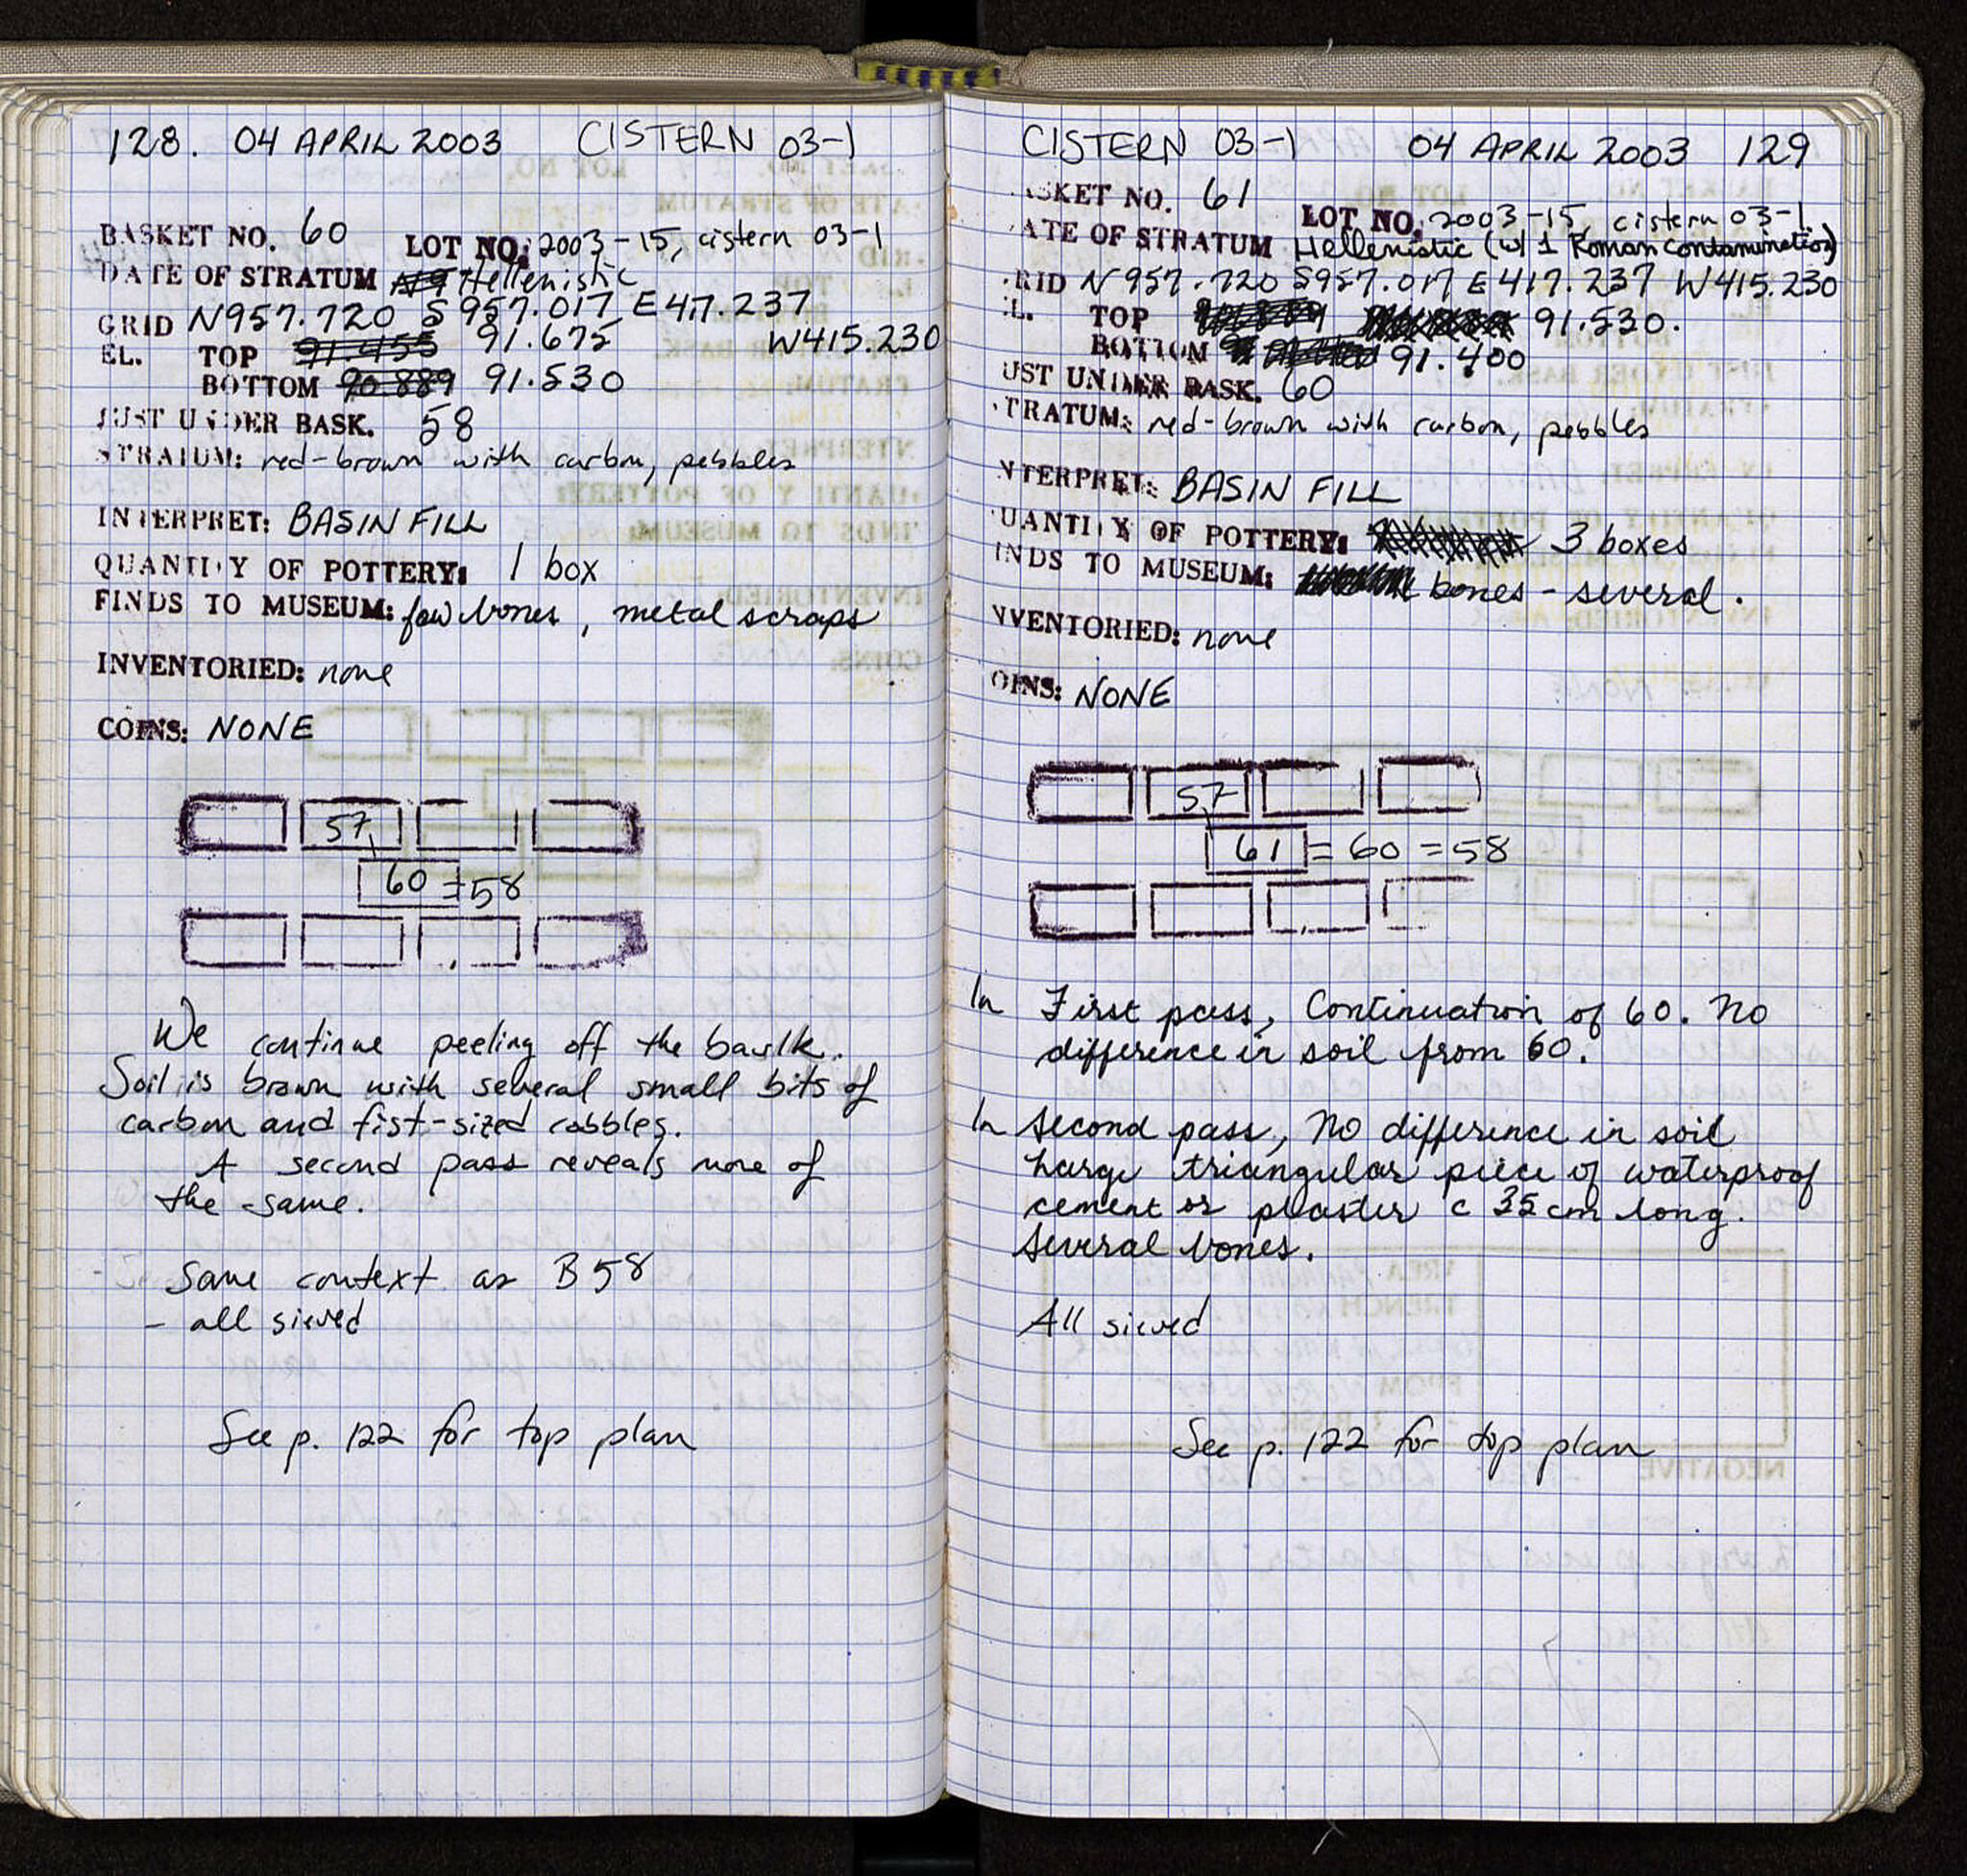 128. 04 APRIL 2003 CISTERN 03-1
BASKET NO. 60 LOT NO. 2003-15, cistern 03-1
DATE OF STRATUM Hellenistic
GRID N957.720 S957.017 E417.237
W415.230
EL. TOP 91.455 91.675
BOTTOM 90.889 91.530
JUST UNDER BASK. 58
STRATUM: red-brown with carbon, pebbles
INTERPRET: BASIN FILL
QUANTITY OF POTTERY: 1 box
FINDS TO MUSEUM: few bones, metal scraps
INVENTORIED: none
COINS: NONE
57
60 = 58
We continue peeling off the baulk.
Soil is brown with several small bits of
carbon and fist-sized cobbles.
A second pass reveals more of
the same.
Same context as B 58
- all sieved
See p. 122 for top plan
CISTERN 03-1 04 APRIL 2003 129
ASKET NO. 61 LOT NO. 2003-15, cistern 03-1
ATE OF STRATUM Hellenistic (w/ 1 Roman contamination)
RID N957.720 S957.017 E417.237 W415.230
L. TOP 91.530.
BOTTOM 91.400
UST UNDER BASK. 60
TRATUM: red-brown with carbon, pebbles
NTERPRET: BASIN FILL
UANTITY OF POTTERY: 3 boxes
INDS TO MUSEUM: bones - several.
NVENTORIED: none
OINS: NONE
57
61 = 60 = 58
In First pass, Continuation of 60. No
difference in soil from 60.
In Second pass, No difference in soil
Large triangular piece of waterproof
cement or plaster c 35 cm long.
Several bones.
All sieved
See p. 122 for top plan